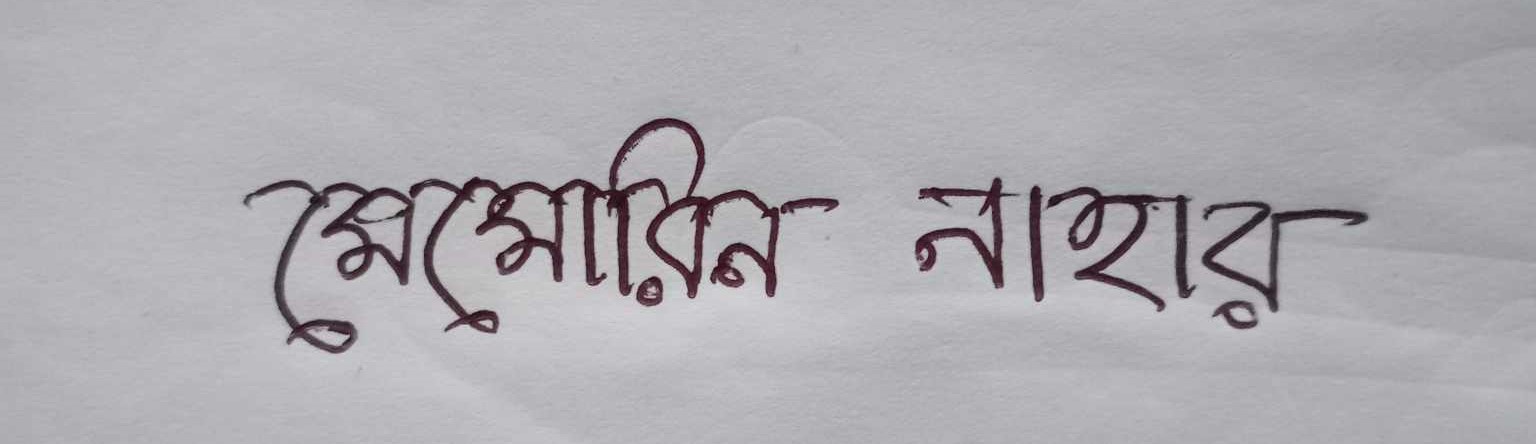 মেমোরিন নাহার